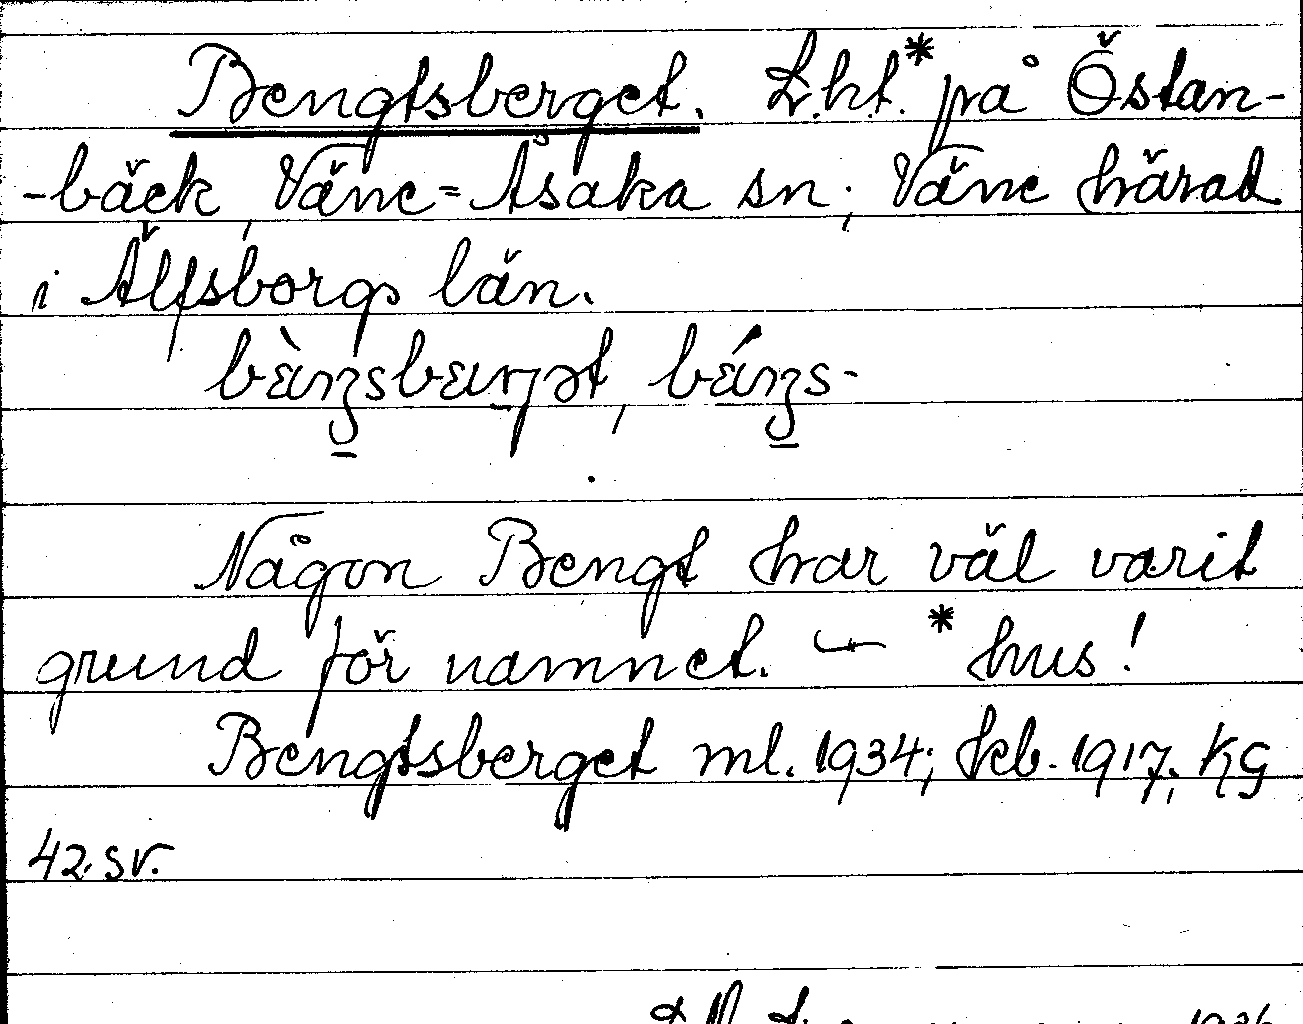 Bengtsberget. L.h.t.* på Östan-
-bäck, Väne-Åsaka sn, Väne härad
i Älfsborgs län.
Någon Bengt har väl varit
grund för namnet. — * hus!
Bengtsberget ml. 1934; kb. 1917, KG
42. sv.